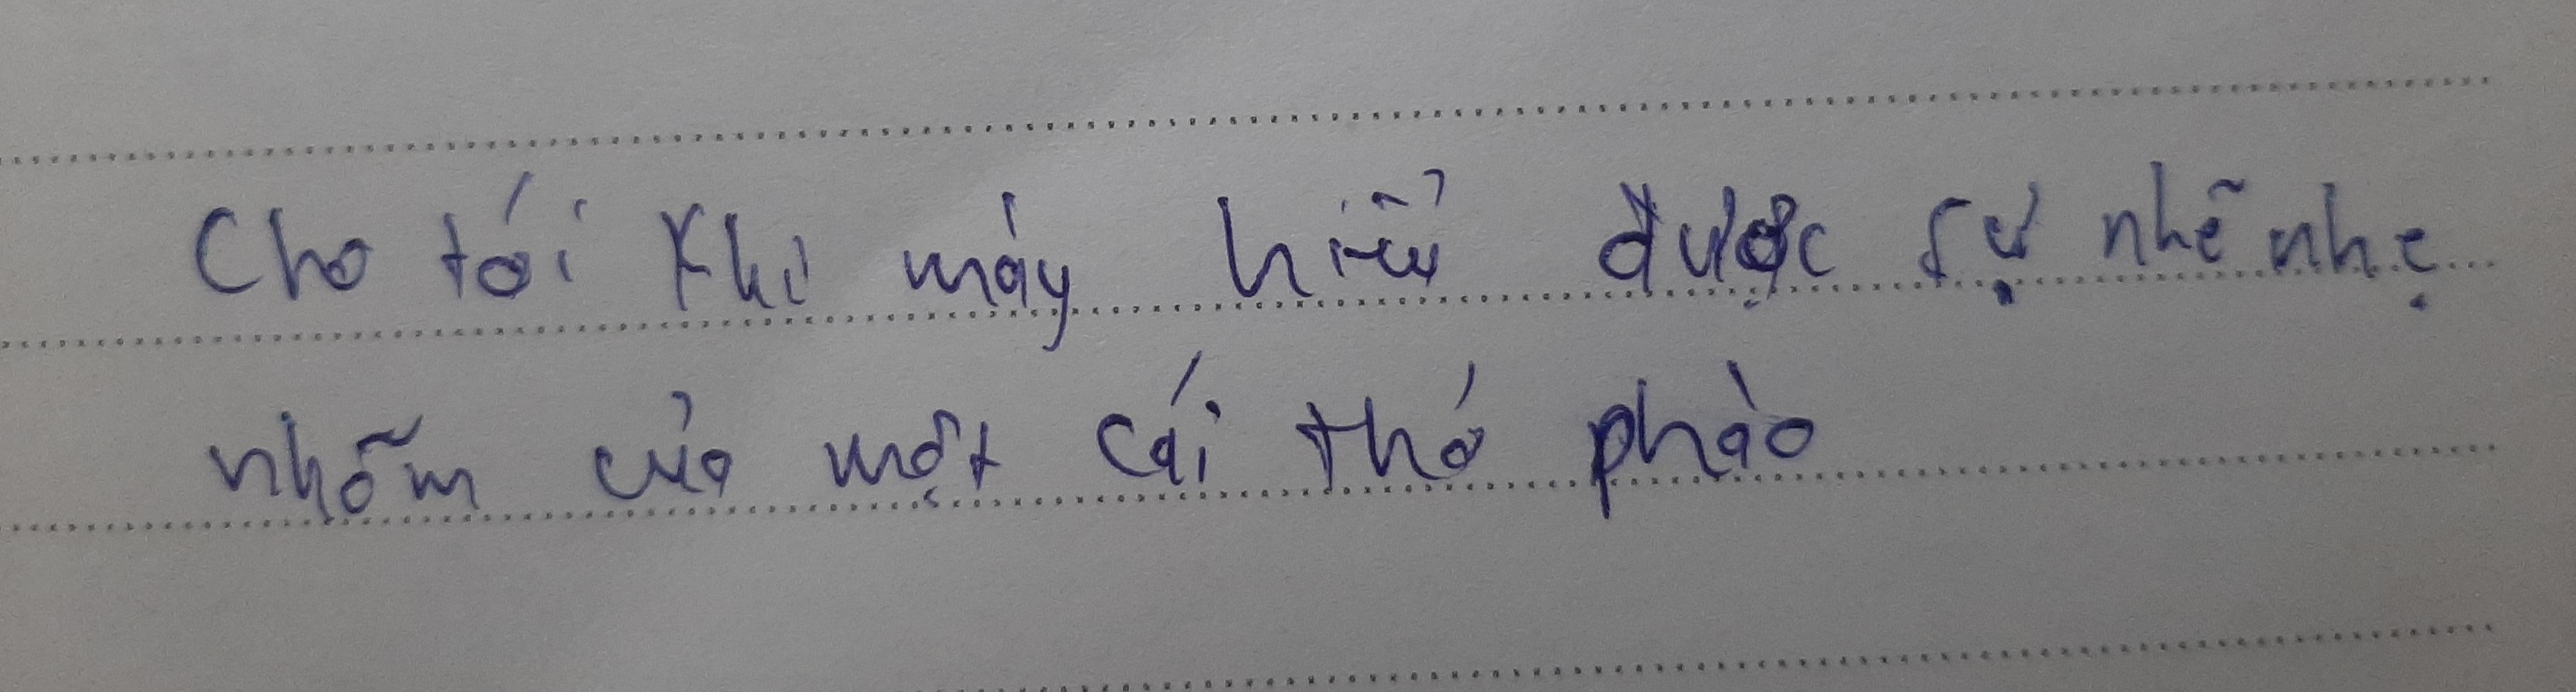 Cho tới khi máy hiểu được sự nhẽ nhẹ
nhõm của một cái thở phào